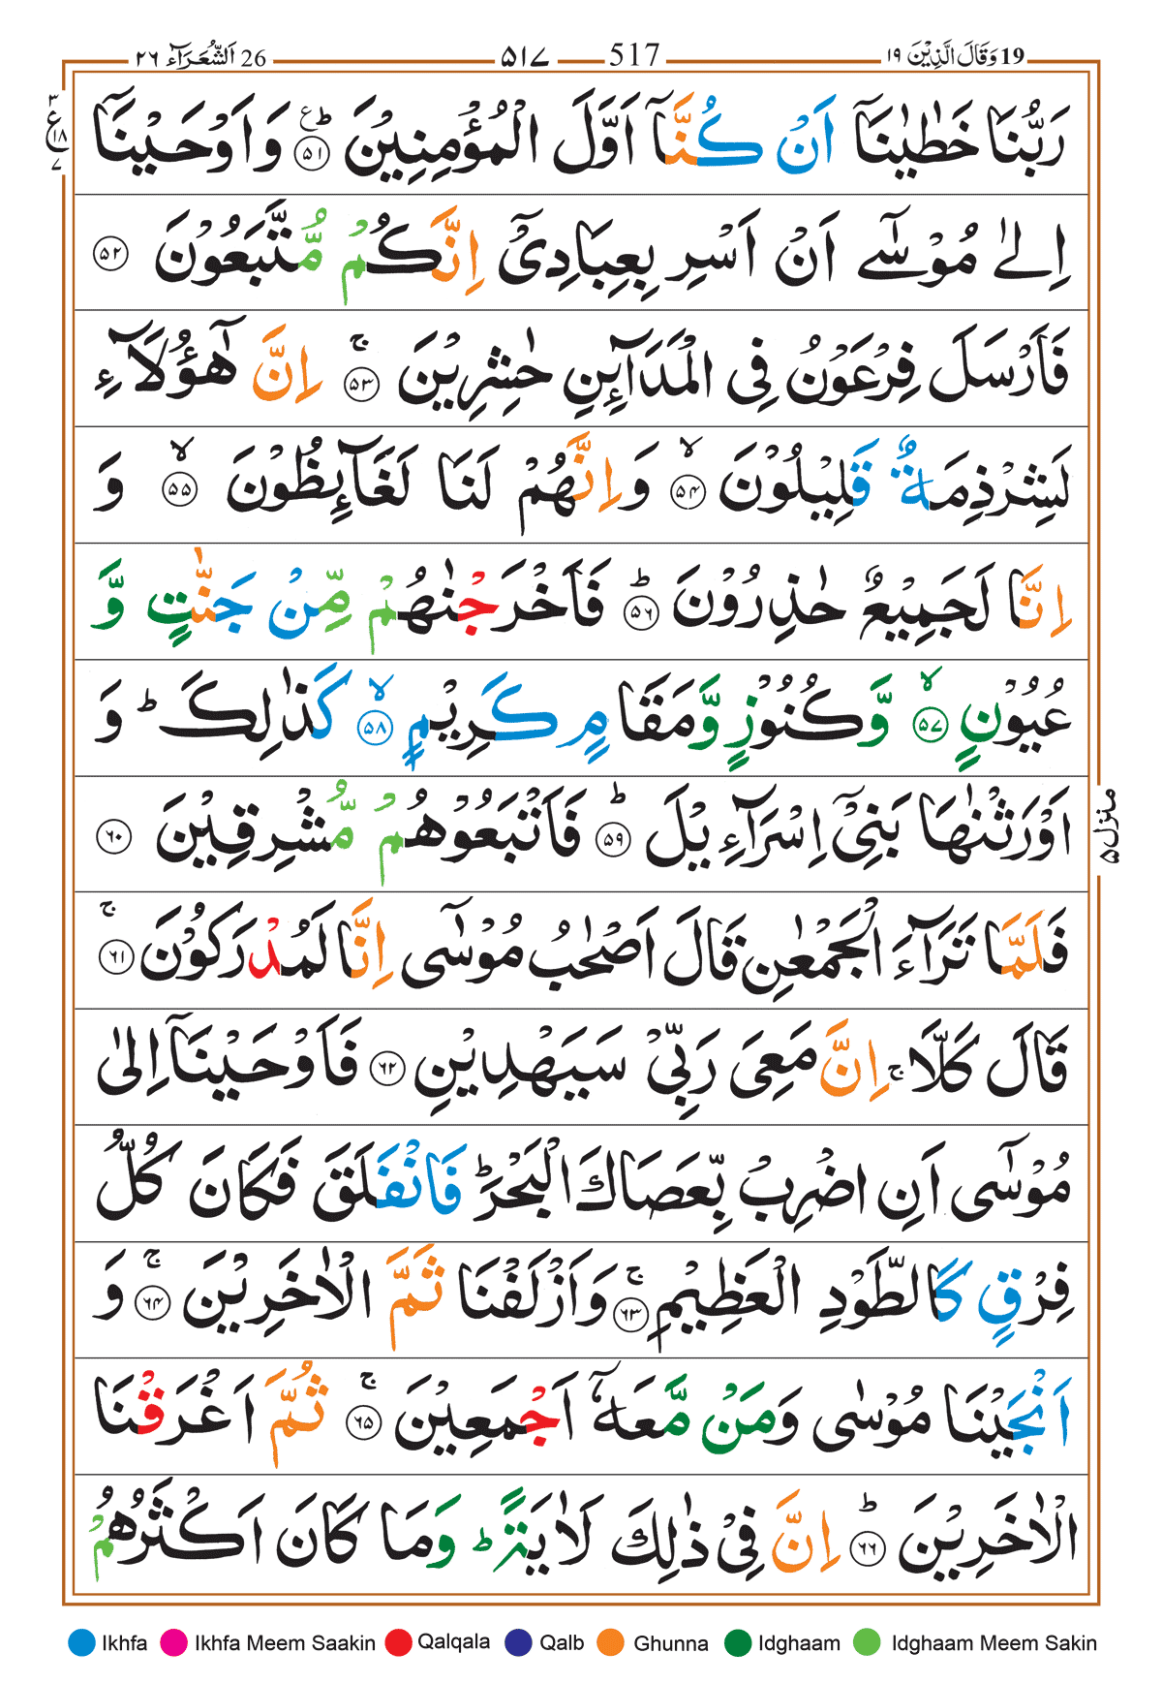 19 وَقَالَ الَّذِيْنَ ١٩ 517 ۵۱۷ 26 اَلشُّعَرَآء ٢٦
رَبُّنَا خَطٰيٰنَاۤ اَنْ كُنَّاۤ اَوَّلَ الْمُؤْمِنِيْنَ ؕ ع ۵۱ وَ اَوْحَيْنَاۤ
٣ ع ١٨ ٧
اِلٰى مُوْسٰۤى اَنْ اَسْرِ بِعِبَادِىْۤ اِنَّكُمْ مُّتَّبَعُوْنَ ۵۲
فَاَرْسَلَ فِرْعَوْنُ فِى الْمَدَآئِنِ حٰشِرِيْنَ ۚ ۵۳ اِنَّ هٰٓؤُلَآءِ
لَشِرْذِمَةٌ قَلِيْلُوْنَ ۙ ۵۴ وَ اِنَّهُمْ لَنَا لَغَآئِظُوْنَ ۙ ۵۵ وَ
اِنَّا لَجَمِيْعٌ حٰذِرُوْنَ ؕ ۵۶ فَاَخْرَجْنٰهُمْ مِّنْ جَنّٰتٍ وَّ
عُيُوْنٍ ۙ ۵۷ وَّ كُنُوْزٍ وَّ مَقَامٍ كَرِيْمٍ ۙ ۵۸ كَذٰلِكَ ؕ وَ
اَوْرَثْنٰهَا بَنِىْۤ اِسْرَآءِيْلَ ؕ ۵۹ فَاَتْبَعُوْهُمْ مُّشْرِقِيْنَ ۶۰
منزل ۵
فَلَمَّا تَرَآءَ الْجَمْعٰنِ قَالَ اَصْحٰبُ مُوْسٰۤى اِنَّا لَمُدْرَكُوْنَ ۚ ۶۱
قَالَ كَلَّا ۚ اِنَّ مَعِىَ رَبِّىْ سَيَهْدِيْنِ ۶۲ فَاَوْحَيْنَاۤ اِلٰى
مُوْسٰۤى اَنِ اضْرِبْ بِّعَصَاكَ الْبَحْرَ ؕ فَانْفَلَقَ فَكَانَ كُلُّ
فِرْقٍ كَالطَّوْدِ الْعَظِيْمِ ۚ ۶۳ وَ اَزْلَفْنَا ثَمَّ الْاٰخَرِيْنَ ۚ ۶۴ وَ
اَنْجَيْنَا مُوْسٰى وَ مَنْ مَّعَهٗۤ اَجْمَعِيْنَ ۚ ۶۵ ثُمَّ اَغْرَقْنَا
الْاٰخَرِيْنَ ؕ ۶۶ اِنَّ فِىْ ذٰلِكَ لَاٰيَةً ؕ وَ مَا كَانَ اَكْثَرُهُمْ
Ikhfa Ikhfa Meem Saakin Qalqala Qalb Ghunna Idghaam Idghaam Meem Sakin